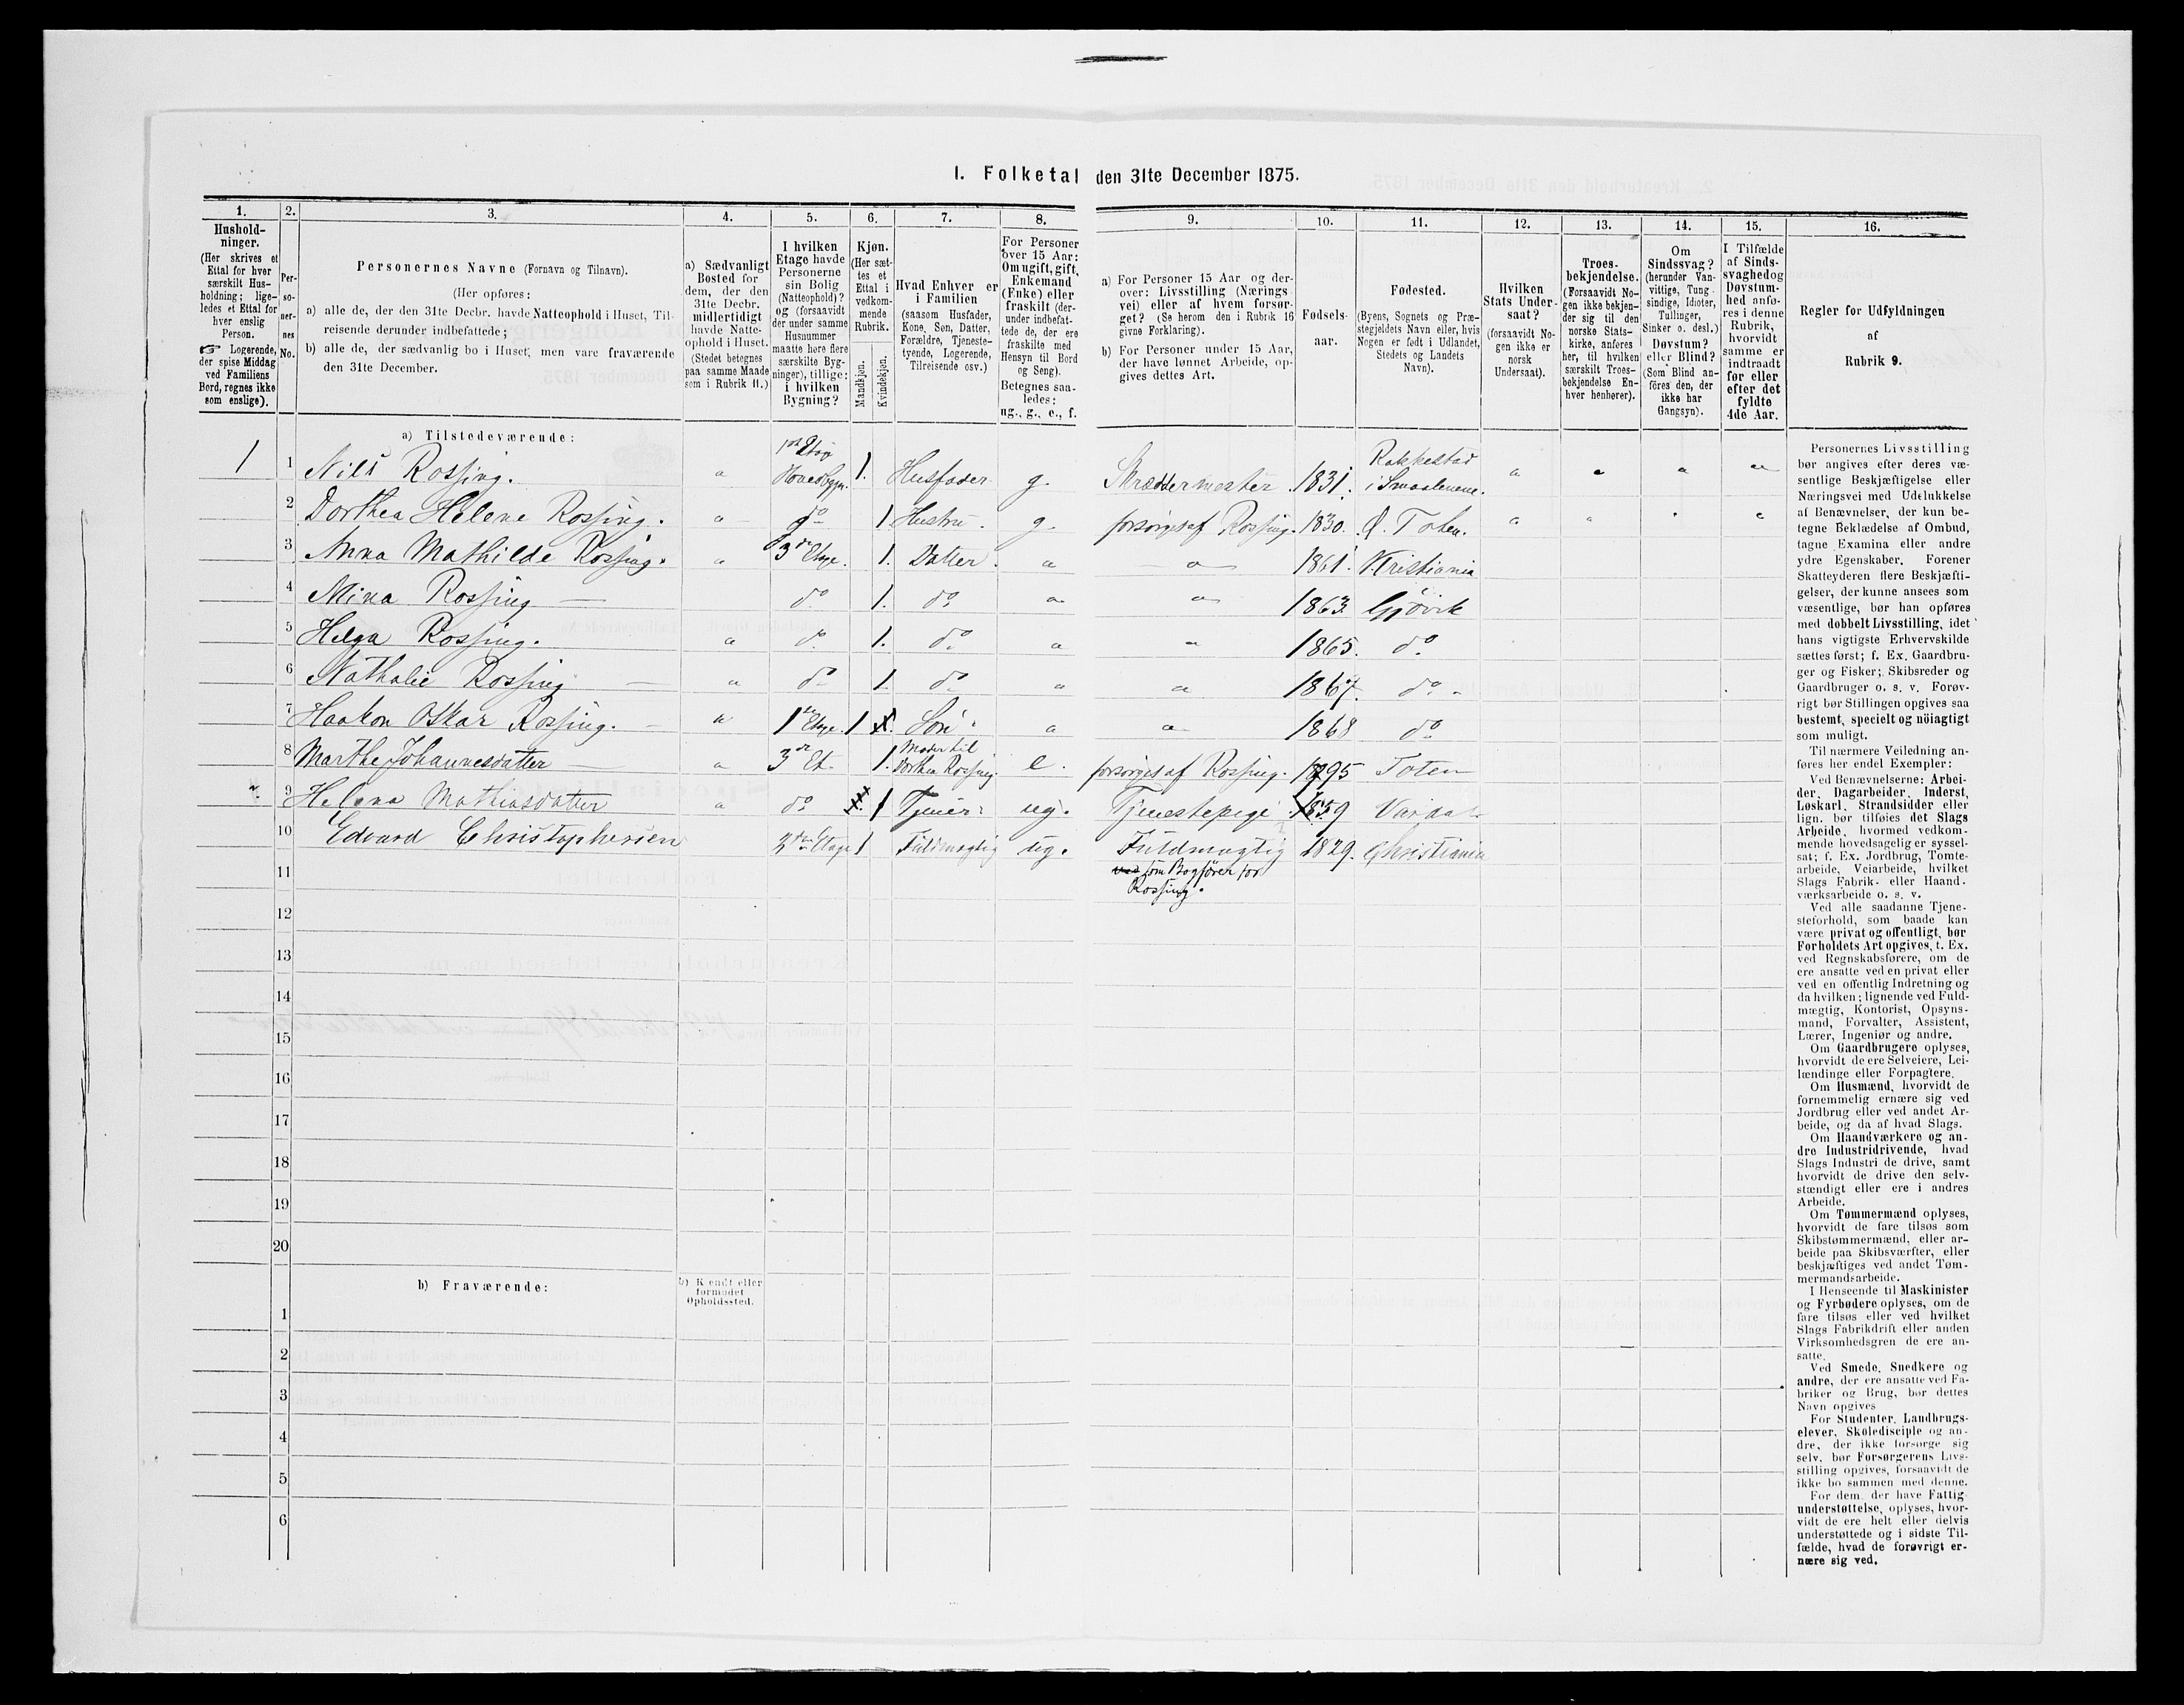 I. Folketal den 31te December 1875.
1. 2. 3. 4. 5. 6. 7. 8. 9. 10. 11. 12. 13. 14. 15. 16.
Hushold-
ninger.
(Her skrives et
Ettal for hver
særskilt Hus-
holdning; lige-
ledes et Ettal for
hver enslig
Person.
☞ Logerende,
der spise Middag
ved Familiens
Bord, regnes ikke
som enslige).
Per-
so-
ner-
nes
No.
Personernes Navne (Fornavn og Tilnavn).
(Her opføres:
a) alle de, der den 31te Decbr. havde Natteophold i Huset, Til-
reisende derunder indbefattede;
b) alle de, der sædvanlig bo i Huset, men vare fraværende
den 31te December.
a) Sædvanligt
Bosted for
dem, der den
31te Decbr.
midlertidigt
havde Natte-
ophold i Huset.
(Stedet betegnes
paa samme Maade
som i Rubrik 11.)
I hvilken
Etage havde
Personerne
sin Bolig
(Natteophold)?
og (forsaavidt
der under samme
Husnummer
maatte høre flere
særskilte Byg-
ninger), tillige:
i hvilken
Bygning?
Kjøn.
(Her sæt-
tes et
Ettal i
vedkom-
mende
Rubrik.
Mandkjøn.
Kvindekjøn.
Hvad Enhver er
i Familien
(saasom Husfader,
Kone, Søn, Datter,
Forældre, Tjeneste-
tyende, Logerende,
Tilreisende osv.)
For Personer
over 15 Aar:
Om ugift, gift,
Enkemand
(Enke) eller
fraskilt (der-
under indbefat-
tede de, der ere
fraskilte med
Hensyn til Bord
og Seng).
Betegnes saa-
ledes:
ug., g., e., f.
a) For Personer 15 Aar og der-
over: Livsstilling (Nærings-
vei) eller af hvem forsør-
get? (Se herom den i Rubrik 16
givne Forklaring).
b) For Personer under 15 Aar,
der have lønnet Arbeide, op-
gives dettes Art.
Fødsels-
aar.
Fødested.
(Byens, Sognets og Præ-
stegjeldets Navn eller, hvis
Nogen er født i Udlandet,
Stedets og Landets
Navn).
Hvilken
Stats Under-
saat?
(forsaavidt No-
gen ikke er
norsk
Undersaat).
Troes-
bekjendelse.
(Forsaavidt No-
gen ikke bekjen-
der sig til den
norske Stats-
kirke, anføres
her, til hvilken
særskilt Troes-
bekjendelse En-
hver henhører).
Om
Sindssvag?
(herunder Van-
vittige, Tung-
sindige, Idioter,
Tullinger,
Sinker o. desl.)
Døvstum?
eller Blind?
(Som Blind an-
føres den, der
ikke har
Gangsyn).
I Tilfælde
af Sinds-
svaghed og
Døvstum-
hed anfø-
res i denne
Rubrik,
hvorvidt
samme er
indtraadt
før eller
efter det
fyldte
4de Aar.
Regler for Udfyldningen
af
Rubrik 9.
a) Tilstedeværende:
1 1 Nils Rossing. 1ste Etage Hovedbygn. 1. Husfader g. Skræddermester 1831. Rakkestad i Smaalenene.
2 Dorthea Helene Rossing. do 1 Hustru. g. forsørges af Rossing. 1830. Ø. Toten.
3 Anna Mathilde Rossing. 3de Etage. 1. Datter. 1861. Kristiania
4 Mina Rossing do 1. do 1863 Gjøvik
5 Helga Rossing. do 1. do 1865. do
6 Nathalie Rossing do 1. do 1867. do
7 Haakon Oskar Rossing. 1ste Etage. 1 Søn. 1868 do
8 Marthe Johannesdatter 3de Et. 1. Moder til Dorthea Rossing e. forsørges af Rossing. 1795 Toten
9 Helena Mathiasdatter do 1 Tjener ug. Tjenestepige 1859 Vardal
10 Edvard Christophersen Etage 1 Fuldmægtig ug. Fuldmægtig 1829. Christiania
11 som Bogfører for
Rossing.
12
13
14
15
16
17
18
19
20
b) Fraværende:
b) Kjendt eller
formodet
Opholdssted.
1
2
3
4
5
6
Personernes Livsstilling
bør angives efter deres væ-
sentlige Beskjæftigelse eller
Næringsvei med Udelukkelse
af Benævnelser, der kun be-
tegne Beklædelse af Ombud,
tagne Examina eller andre
ydre Egenskaber. Forener
Skatteyderen flere Beskjæfti-
gelser, der kunne ansees som
væsentlige, bør han opføres
med dobbelt Livsstilling, idet
hans vigtigste Erhvervskilde
sættes først; f. Ex. Gaardbru-
ger og Fisker; Skibsreder og
Gaardbruger o. s. v. Forøv-
rigt bør Stillingen opgives saa
bestemt, specielt og nöiagtigt
som muligt.
Til nærmere Veiledning an-
føres her endel Exempler:
Ved Benævnelserne: Arbei-
der, Dagarbeider, Inderst,
Løskarl, Strandsidder eller
lign. bør tilføies det Slags
Arbeide, hvormed vedkom-
mende hovedsagelig er syssel-
sat; f. Ex. Jordbrug, Tomte-
arbeide, Veiarbeide, hvilket
Slags Fabrik- eller Haand-
værksarbeide o. s. v.
Ved alle saadanne Tjene-
steforhold, som baade kan
være privat og offentligt, bør
Forholdets Art opgives, t. Ex.
ved Regnskabsførere, om de
ere ansatte ved en privat eller
ved en offentlig Indretning og
da hvilken; lignende ved Fuld-
mægtig, Kontorist, Opsyns-
mand, Forvalter, Assistent,
Lærer, Ingeniør og andre.
Om Gaardbrugere oplyses,
hvorvidt de ere Selveiere, Lei-
lændinge eller Forpagtere.
Om Husmænd, hvorvidt de
fornemmelig ernære sig ved
Jordbrug eller ved andet Ar-
beide, og da af hvad Slags.
Om Haandværkere og an-
dre Industridrivende, hvad
Slags Industri de drive, samt
hvorvidt de drive den selv-
stændigt eller ere i andres
Arbeide.
Om Tømmermænd oplyses,
hvorvidt de fare tilsøs som
Skibstømmermænd, eller ar-
beide paa Skibsværfter, eller
beskjæftiges ved andet Tøm-
mermandsarbeide.
I Henseende til Maskinister
og Fyrbødere oplyses, om de
fare tilsøs eller ved hvilket
Slags Fabrikdrift eller anden
Virksomhedsgren de ere an-
satte.
Ved Smede, Snedkere og
andre, der ere ansatte ved Fa-
briker og Brug, bør dettes
Navn opgives
For Studenter, Landbrugs-
elever, Skoledisciple og an-
dre, der ikke forsørge sig
selv, bør Forsørgerens Livs-
stilling opgives, forsaavidt de
ikke bo sammen med denne.
For dem, der have Fattig-
understøttelse, oplyses, hvor-
vidt de ere helt eller delvis
understøttede og i sidste Til-
fælde, hvad de forøvrigt er-
nære sig ved.